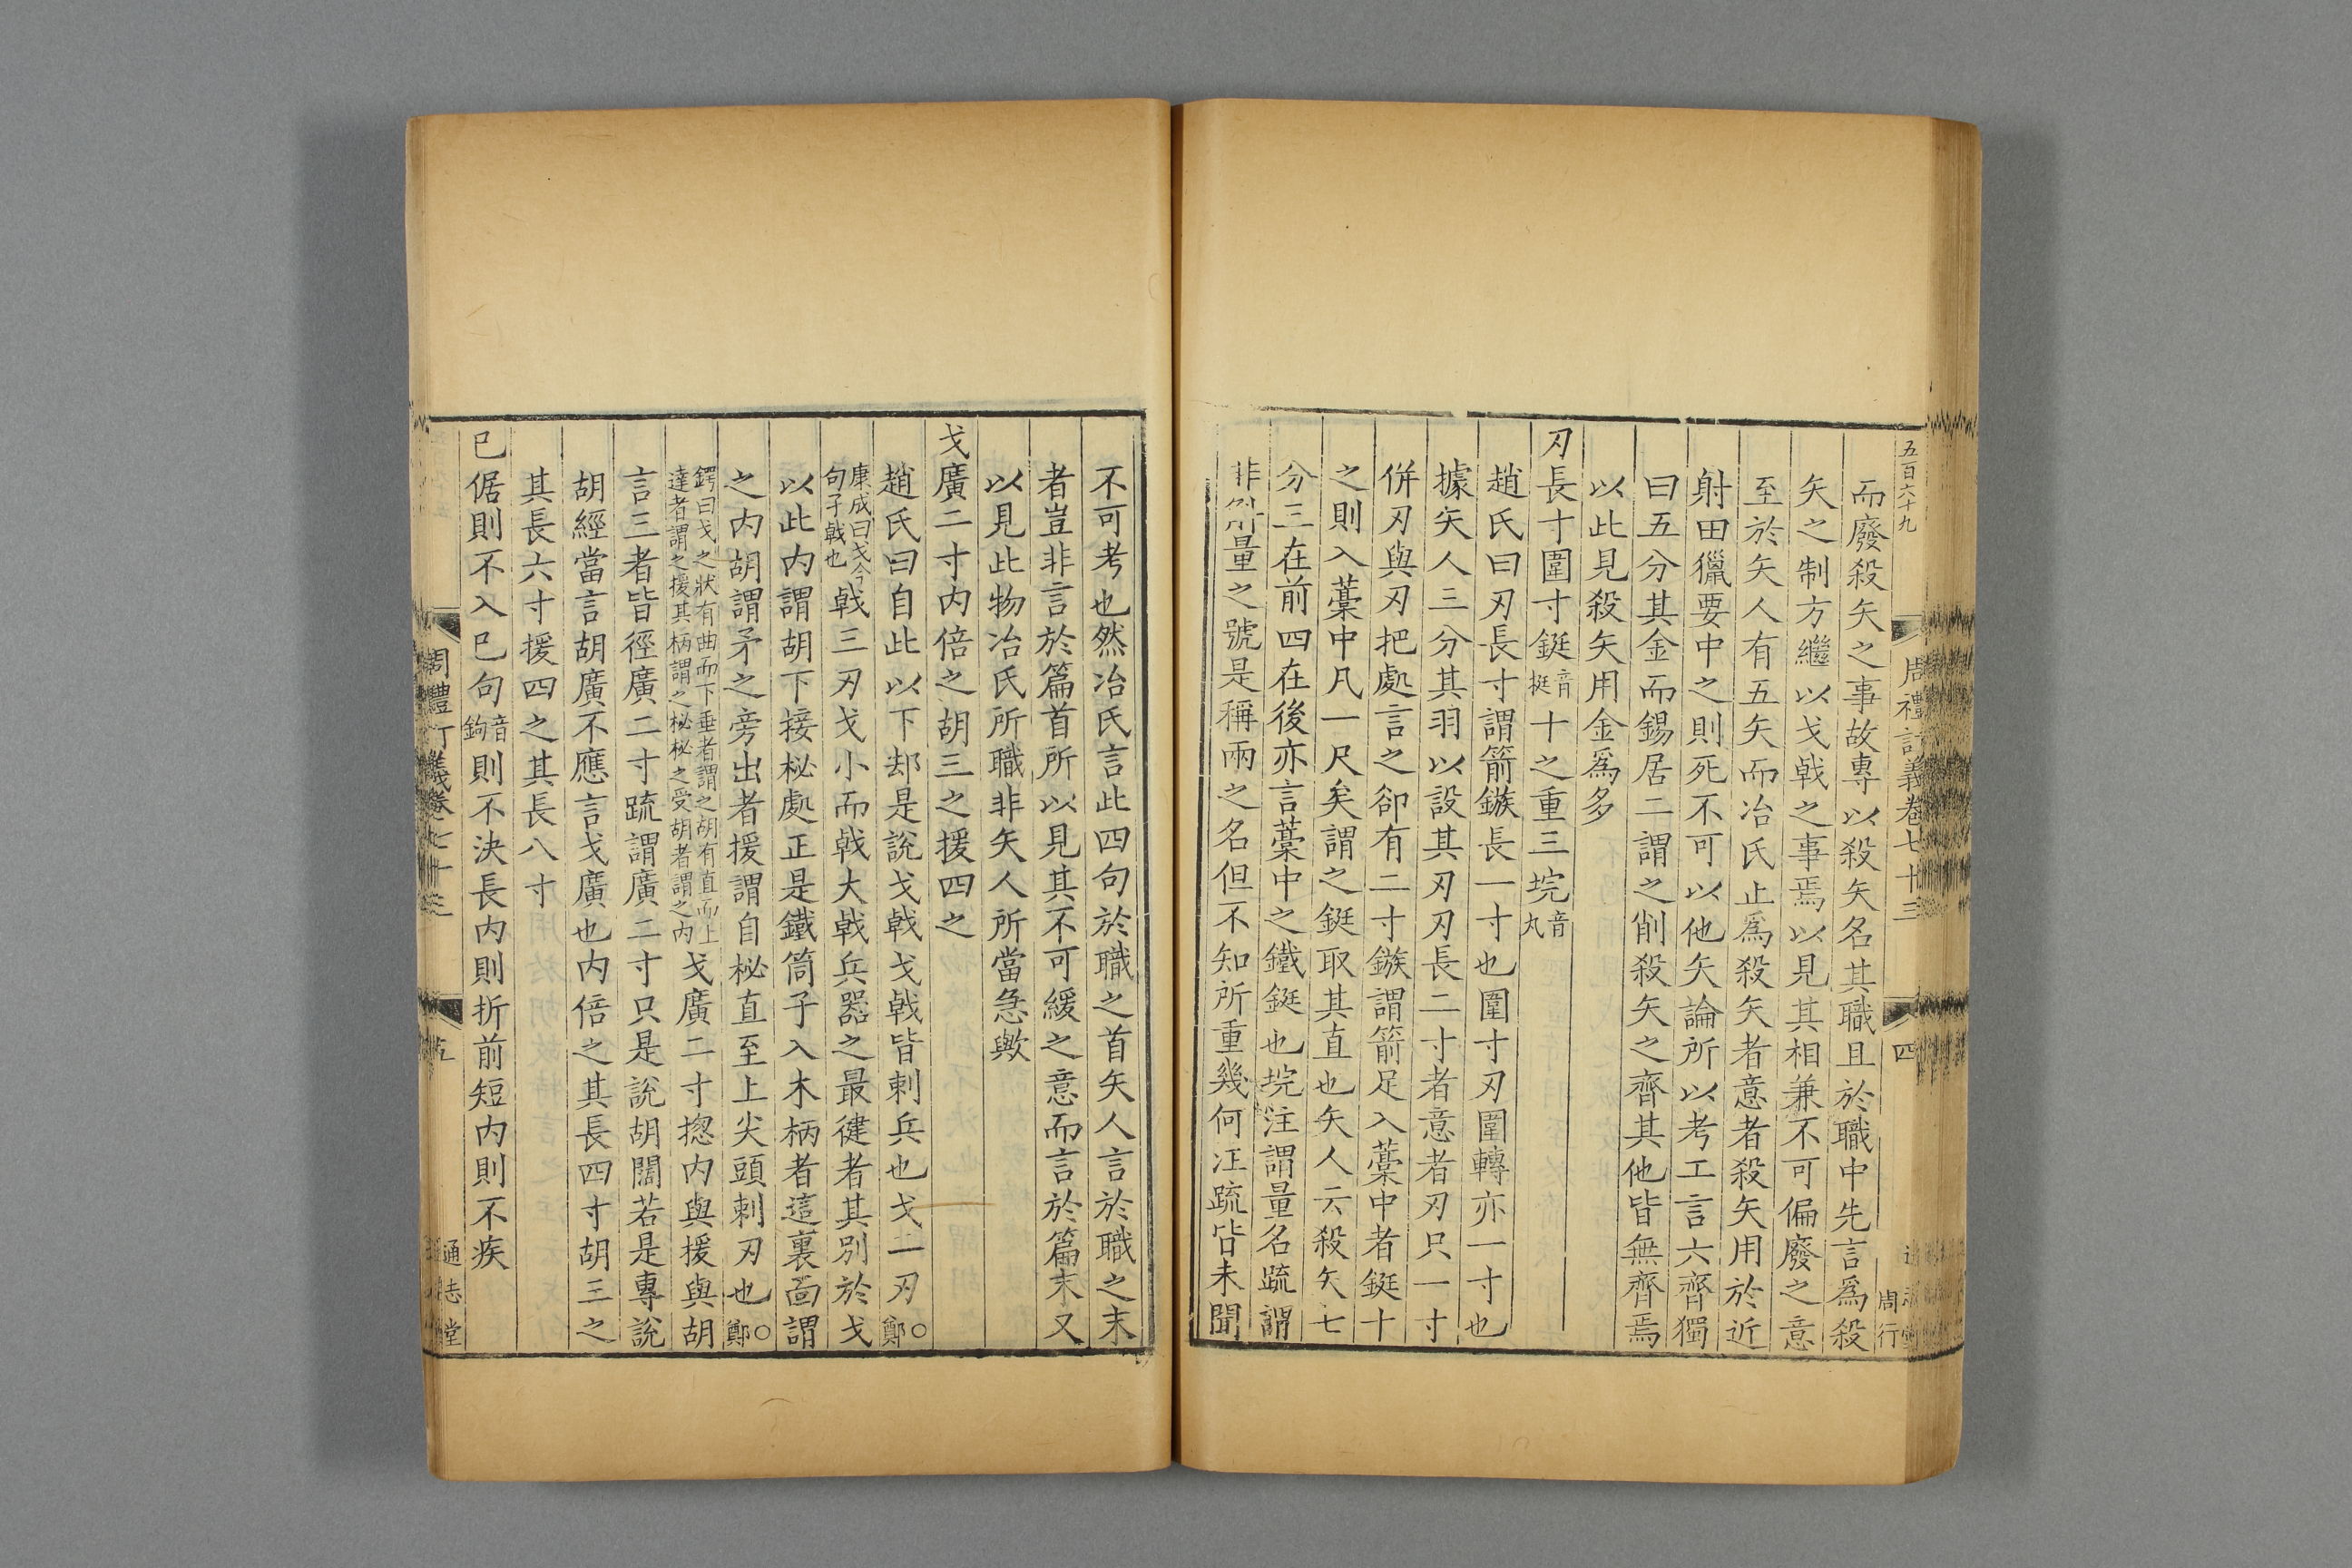 五百六十九
周禮訂義卷七十三
四
周行
而廢殺矢之事故專以殺矢名其職且於職中先言爲殺
矢之制方繼以戈戟之事焉以見其相兼不可偏廢之意
至於矢人有五矢而冶氏止爲殺矢者意者殺矢用於近
射田獵要中之則死不可以他矢論所以考工言六齊獨
曰五分其金而錫居二謂之削殺矢之齊其他皆無齊焉
以此見殺矢用金爲多
刃長寸圍寸鋌音挺十之重三垸音丸
趙氏曰刃長寸謂箭鏃長一寸也圍寸刃圍轉亦一寸也
據矢人三分其羽以設其刃刃長二寸者意者刃只一寸
併刃與刃把處言之卻有二寸鏃謂箭足入藁中者鋌十
之則入藁中凡一尺矣謂之鋌取其直也矢人云殺矢七
分三在前四在後亦言藁中之鐵鋌也垸注謂量名疏謂
非斛量之號是稱兩之名但不知所重幾何注疏皆未聞
不可考也然冶氏言此四句於職之首矢人言於職之末
者豈非言於篇首所以見其不可緩之意而言於篇末又
以見此物冶氏所職非矢人所當急歟
戈廣二寸内倍之胡三之援四之
趙氏曰自此以下却是說戈戟戈戟皆刺兵也戈二刃○鄭
康成曰戈今句孑戟也戟三刃戈小而戟大戟兵器之最健者其別於戈
以此内謂胡下接柲處正是鐵筒子入木柄者這裏面謂
之内胡謂矛之旁出者援謂自柲直至上尖頭刺刃也○鄭
鍔曰戈之狀有曲而下垂者謂之胡有直而上達者謂之援其柄謂之柲柲之受胡者謂之内戈廣二寸揔内與援與胡
言三者皆徑廣二寸疏謂廣二寸只是說胡闊若是專說
胡經當言胡廣不應言戈廣也内倍之其長四寸胡三之
其長六寸援四之其長八寸
已倨則不入已句音鉤則不決長内則折前短内則不疾
周禮訂義卷七十三
五
通志堂